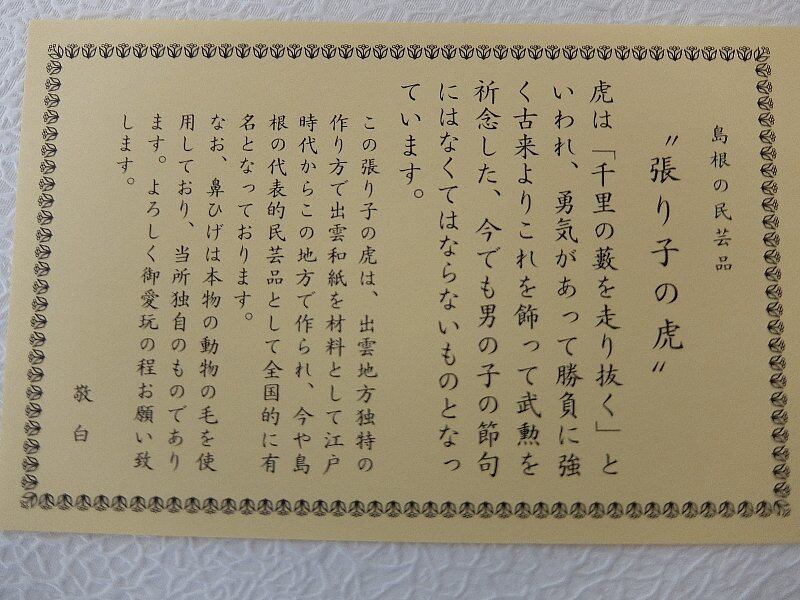 島根の民芸品
〝張り子の虎〟
虎は「千里の藪を走り抜く」と
いわれ、勇気があって勝負に強
く古来よりこれを飾って武勲を
祈念した、今でも男の子の節句
にはなくてはならないものとなっ
ています。
この張り子の虎は、出雲地方独特の
作り方で出雲和紙を材料として江戸
時代からこの地方で作られ、今や島
根の代表的民芸品として全国的に有
名となっております。
なお、鼻ひげは本物の動物の毛を使
用しており、当所独自のものであり
ます。よろしく御愛玩の程お願い致
します。
敬白